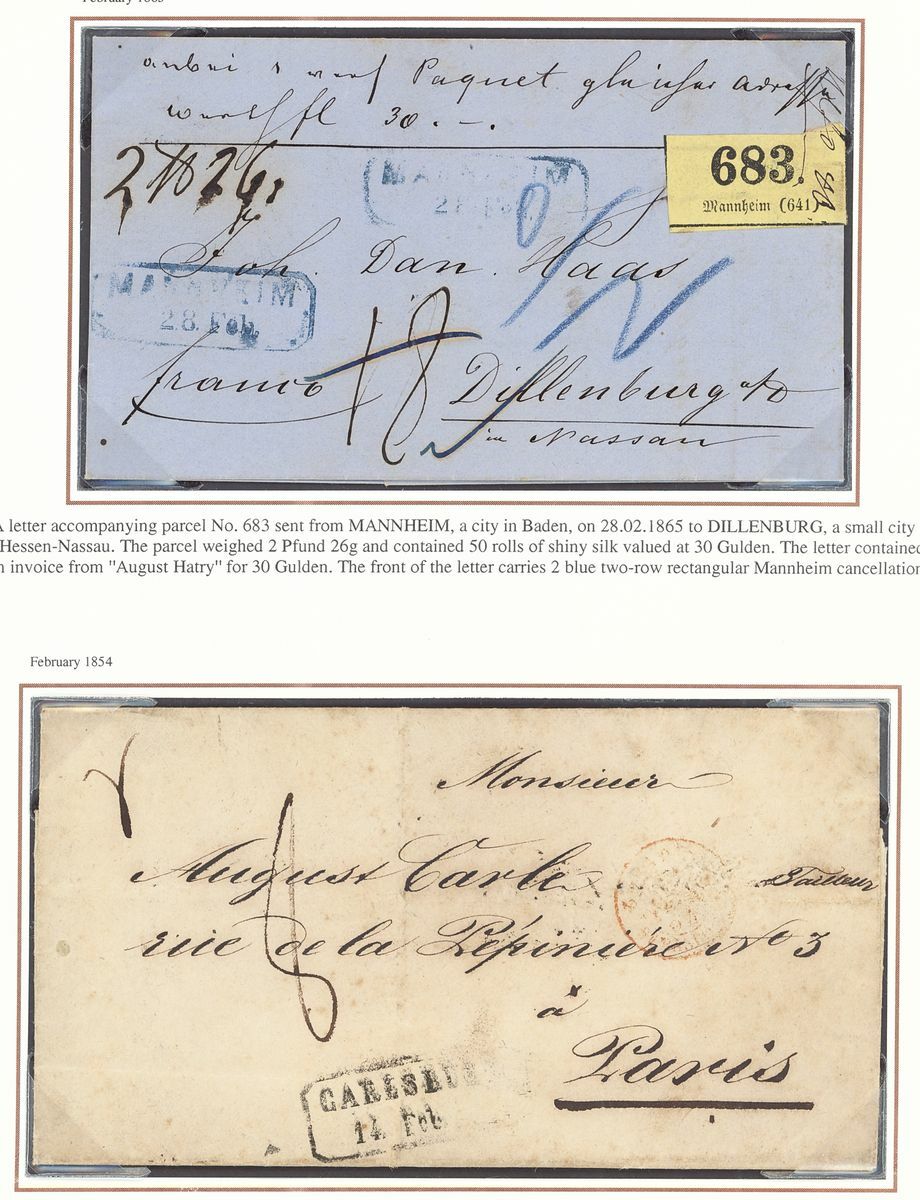 anbei 1 Paquet gleicher Adresse
werth fl 30.-.
2 ℔ 26
683.
Mannheim (641)
MANNHEIM
Joh. Dan. Haas
MANNHEIM
28. Feb.
franco 18 Dillenburg
in Nassau
A letter accompanying parcel No. 683 sent from MANNHEIM, a city in Baden, on 28.02.1865 to DILLENBURG, a small city
Hessen-Nassau. The parcel weighed 2 Pfund 26g and contained 50 rolls of shiny silk valued at 30 Gulden. The letter contained
invoice from "August Hatry" for 30 Gulden. The front of the letter carries 2 blue two-row rectangular Mannheim cancellation
February 1854
Monsieur
August Carle Tailleur
rue de la Pépinière No 3
à
Paris
CARLSRU
14 Feb